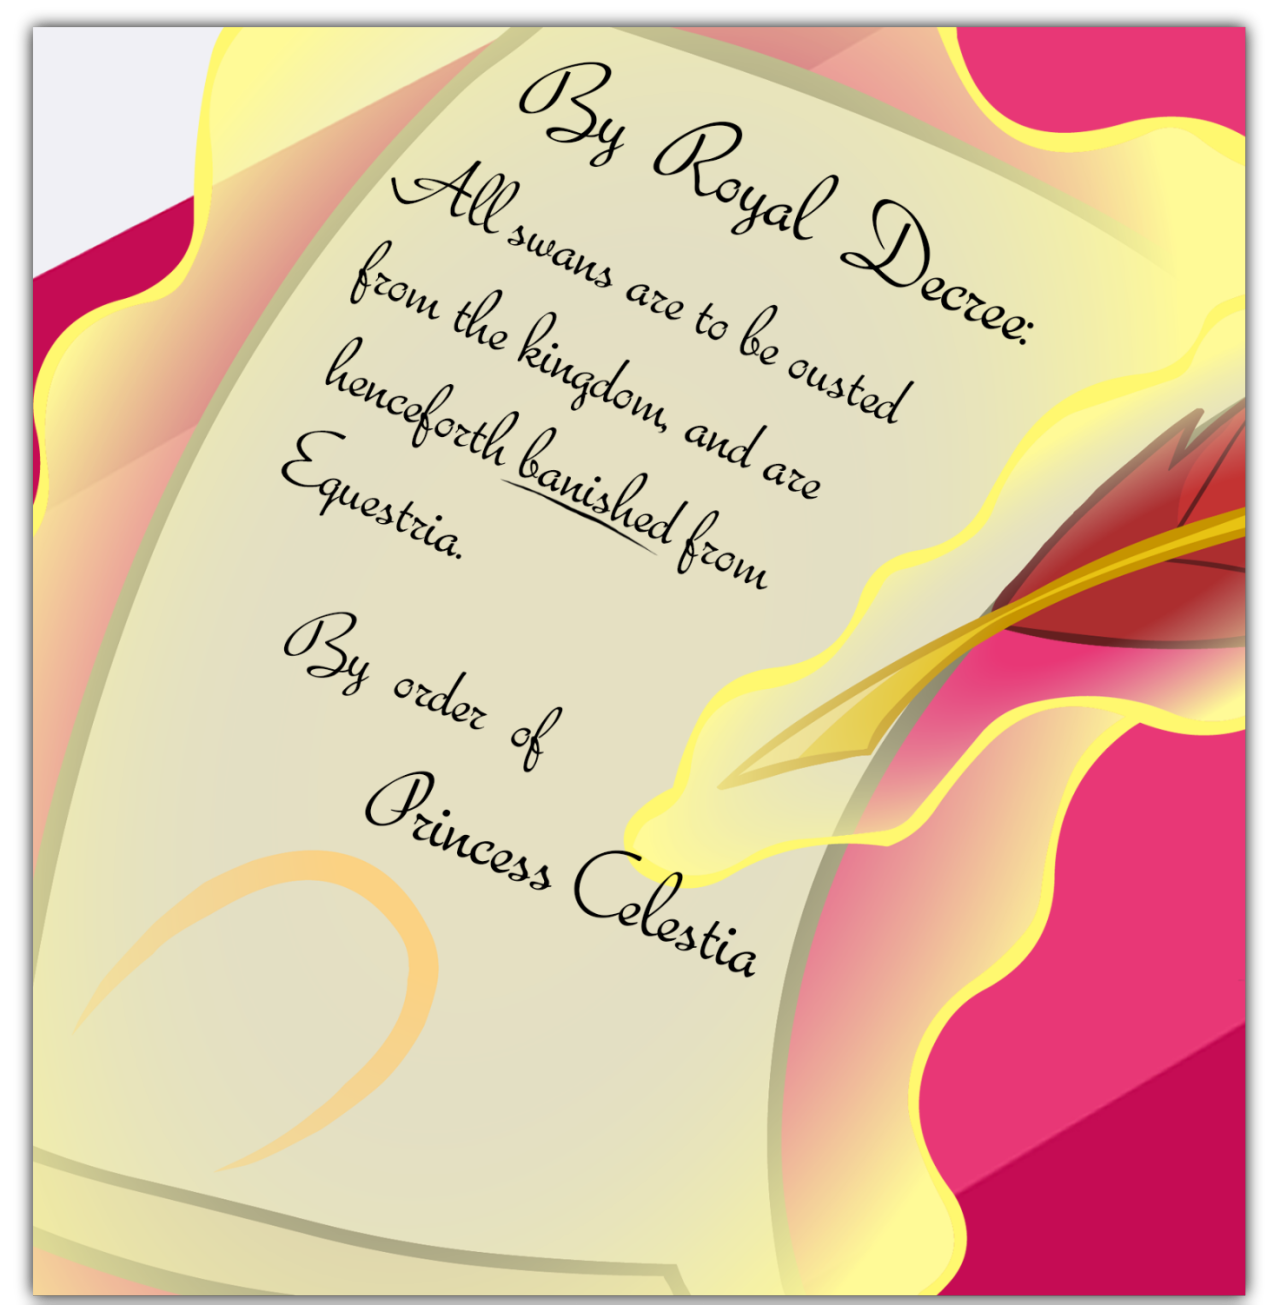 By Royal Decree:
All swans are to be ousted
from the kingdom, and are
henceforth banished from
Equestria.
By order of
Princess Celestia